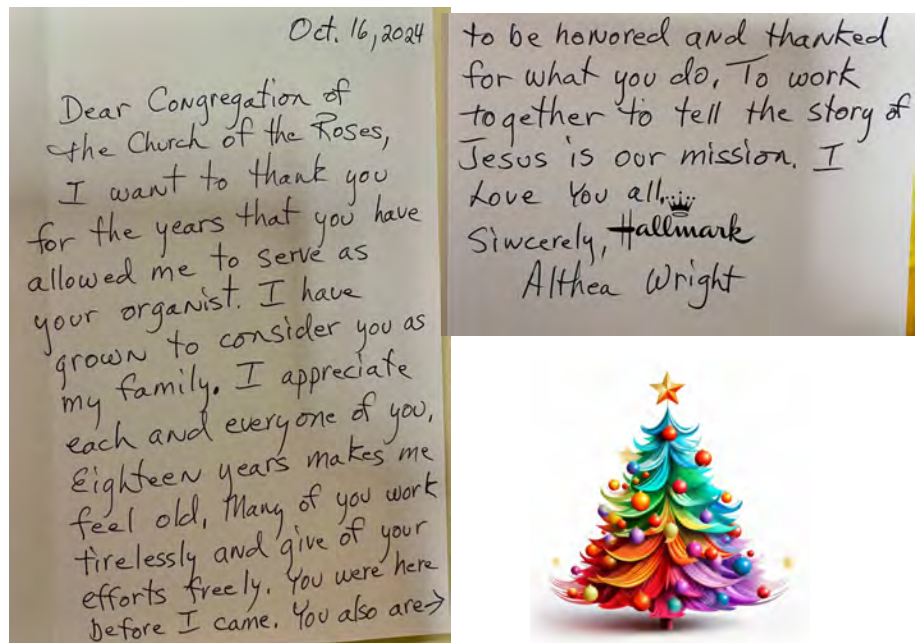 Oct. 16, 2024
Dear Congregation of
the Church of the Roses,
I want to thank you
for the years that you have
allowed me to serve as
your organist. I have
grown to consider you as
my family. I appreciate
each and everyone of you.
Eighteen years makes me
feel old. Many of you work
tirelessly and give of your
efforts freely. You were here
before I came. You also are→
to be honored and thanked
for what you do. To work
together to tell the story of
Jesus is our mission. I
Love You all.
Sincerely, Hallmark
Althea Wright